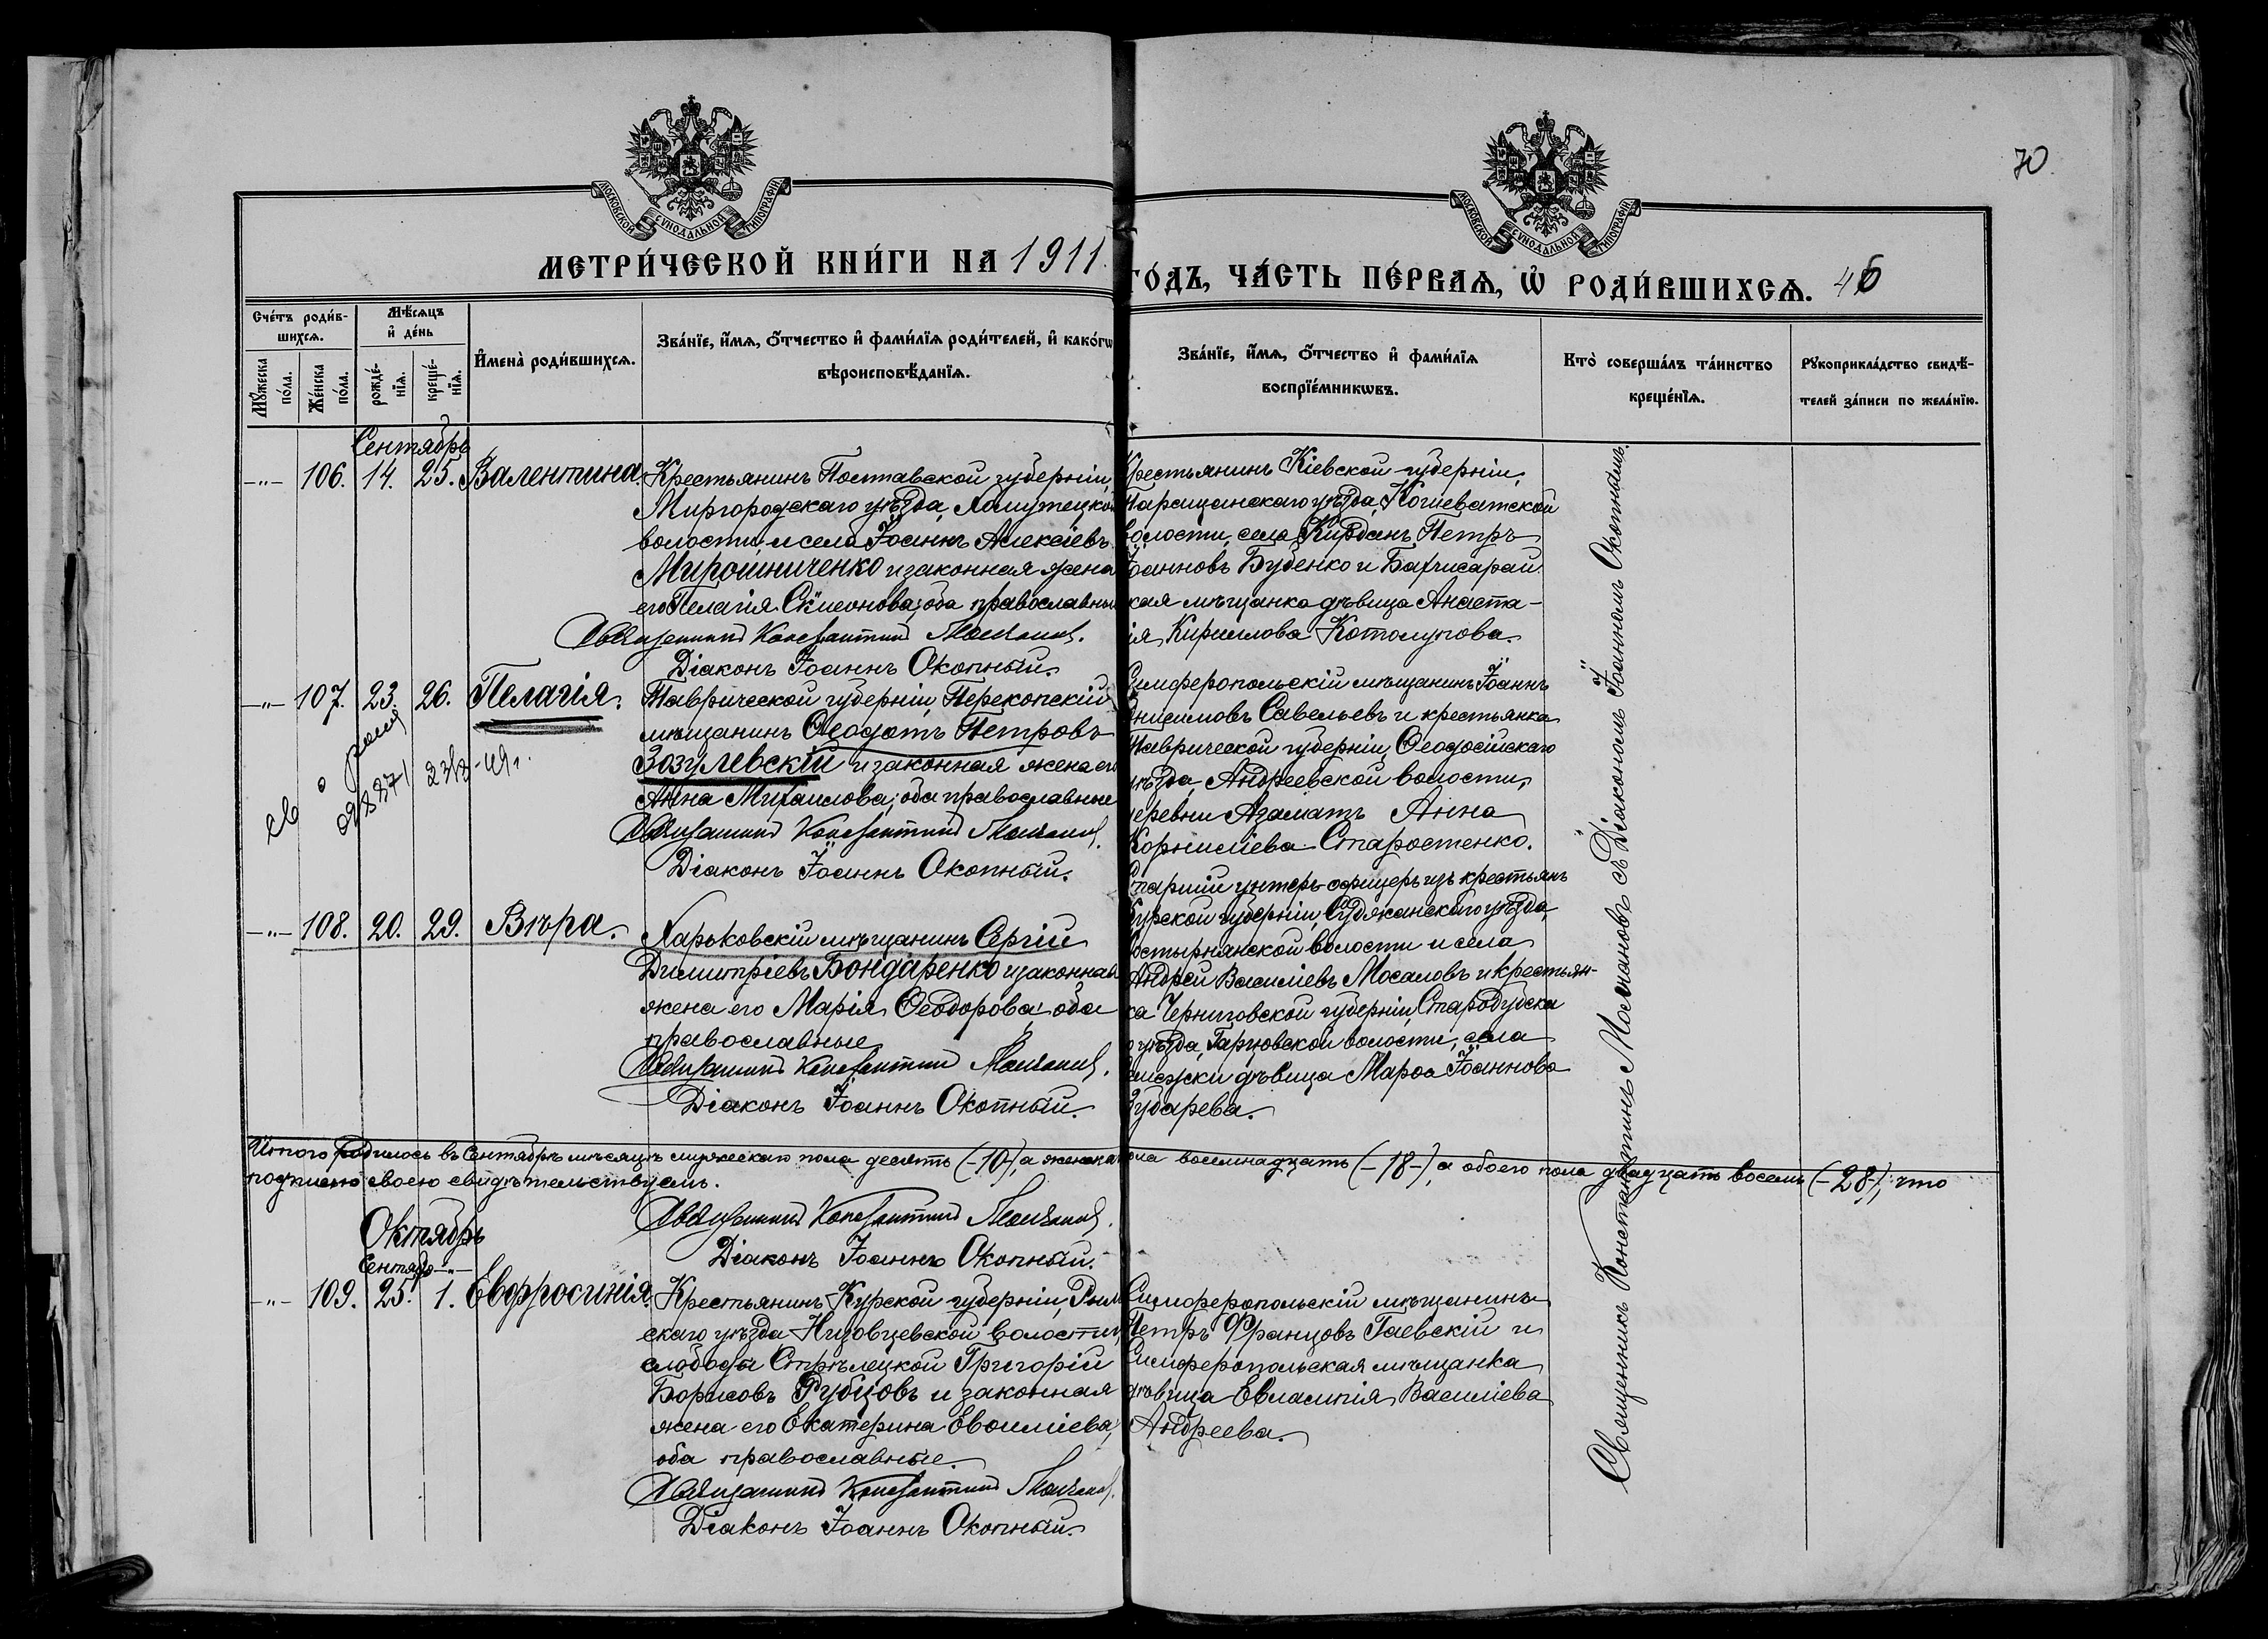 70
МОСКОВСКОЙ СѴНОДАЛЬНОЙ ТИПОГРАФІИ
МОСКОВСКОЙ СѴНОДАЛЬНОЙ ТИПОГРАФІИ
МЕТРИ́ЧЕСКОЙ КНИ́ГИ НА 1911
ГО́ДЪ, ЧА́СТЬ ПЕ́РВАѦ, Ѡ҆ РОДИ́ВШИХСѦ. 46
Сче́тъ роди́в-
шихсѧ.
Мꙋ́жеска
по́ла.
Же́нска
по́ла.
Мѣ́сѧцъ
и҆ де́нь
рожде́-
нїѧ.
креще́-
нїѧ.
И҆мена̀ роди́вшихсѧ.
Зва́нїе, и҆́мѧ, ѻ҆́тчество и҆ фами́лїѧ роди́телей, и҆ како́гѡ
вѣроисповѣ́данїѧ.
Зва́нїе, и҆́мѧ, ѻ҆́тчество и҆ фами́лїѧ
воспрїе́мникѡвъ.
Кто̀ соверша́лъ та́инство
креще́нїѧ.
Рꙋкоприкла́дство свидѣ́-
телей за́писи по жела́нїю.
Сентябрь
-"- 106. 14. 25. Валентина.
Крестьянинъ Полтавской губерніи,
Миргородскаго уѣзда, Хомутецкой
волости и села Іоаннъ Алексіевъ
Мирошниченко и законная жена
его Пелагія Симеонова; оба православные
Священникъ Константинъ Молчановъ.
Діаконъ Іоаннъ Окопный.
Крестьянинъ Кіевской губерніи,
Таращанскаго уѣзда, Кошеватской
волости, села Кирданъ Петръ
Іоанновъ Буденко и Бахчисарай
ская мѣщанка дѣвица Анаста-
ія Кириллова Котолупова.
-"- 107. 23. 26. Пелагія.
Таврической губерніи, Перекопскій
мѣщанинъ Ѳеодотъ Петровъ
Зозулевскій и законная жена его
Анна Михаилова; оба православные
Священникъ Константинъ Молчановъ.
Діаконъ Іоаннъ Окопный.
Симферопольскій мѣщанинъ Іоаннъ
Онисимовъ Савельевъ и крестьянка
Таврической губерніи, Ѳеодосійскаго
уѣзда, Андреевской волости,
деревни Азаматъ Анна
Корниліева Старостенко.
св о рожд
-"- 108. 20. 29. Вѣра.
Харьковскій мѣщанинъ Сергій
Димитріевъ Бондаренко и законная
жена его Марія Ѳеодорова; оба
православные
Священникъ Константинъ Молчановъ.
Діаконъ Іоаннъ Окопный.
Старшій унтеръ-офицеръ изъ крестьянъ
Курской губерніи, Суджанскаго уѣзда,
волости и села
Андрей Василіевъ Мосаловъ и крестьян-
ка Черниговской губерніи, Стародубска
о уѣзда, Гарцовской волости, села
дѣвица Марѳа Іоаннова
Зубарева.
Итого родилось въ Сентябрѣ мѣсяцѣ мужескаго пола десять (-10-), а женска пола восемнадцать (-18-), а обоего пола двадцать восемь (-28-), что
подписью своею свидѣтельствуемъ.
Священникъ Константинъ Молчановъ.
Діаконъ Іоаннъ Окопный.
Октябрь
Сентяб -"-
-"- 109. 25. 1. Евфросинія.
Крестьянинъ Курской губерніи, Рыль
скаго уѣзда Низовцевской волости,
слободы Стрѣлецкой Григорій
Борисовъ Рубцовъ и законная
жена его Екатерина Евѳиміева;
оба православные.
Священникъ Константинъ Молчановъ.
Діаконъ Іоаннъ Окопный.
Симферопольскій мѣщанинъ
Петръ Францовъ Гаевскій и
Симферопольская мѣщанка
дѣвица Евлампія Василіева
Андреева.
Священникъ Константинъ Молчановъ съ Діакономъ Іоанномъ Окопнымъ.